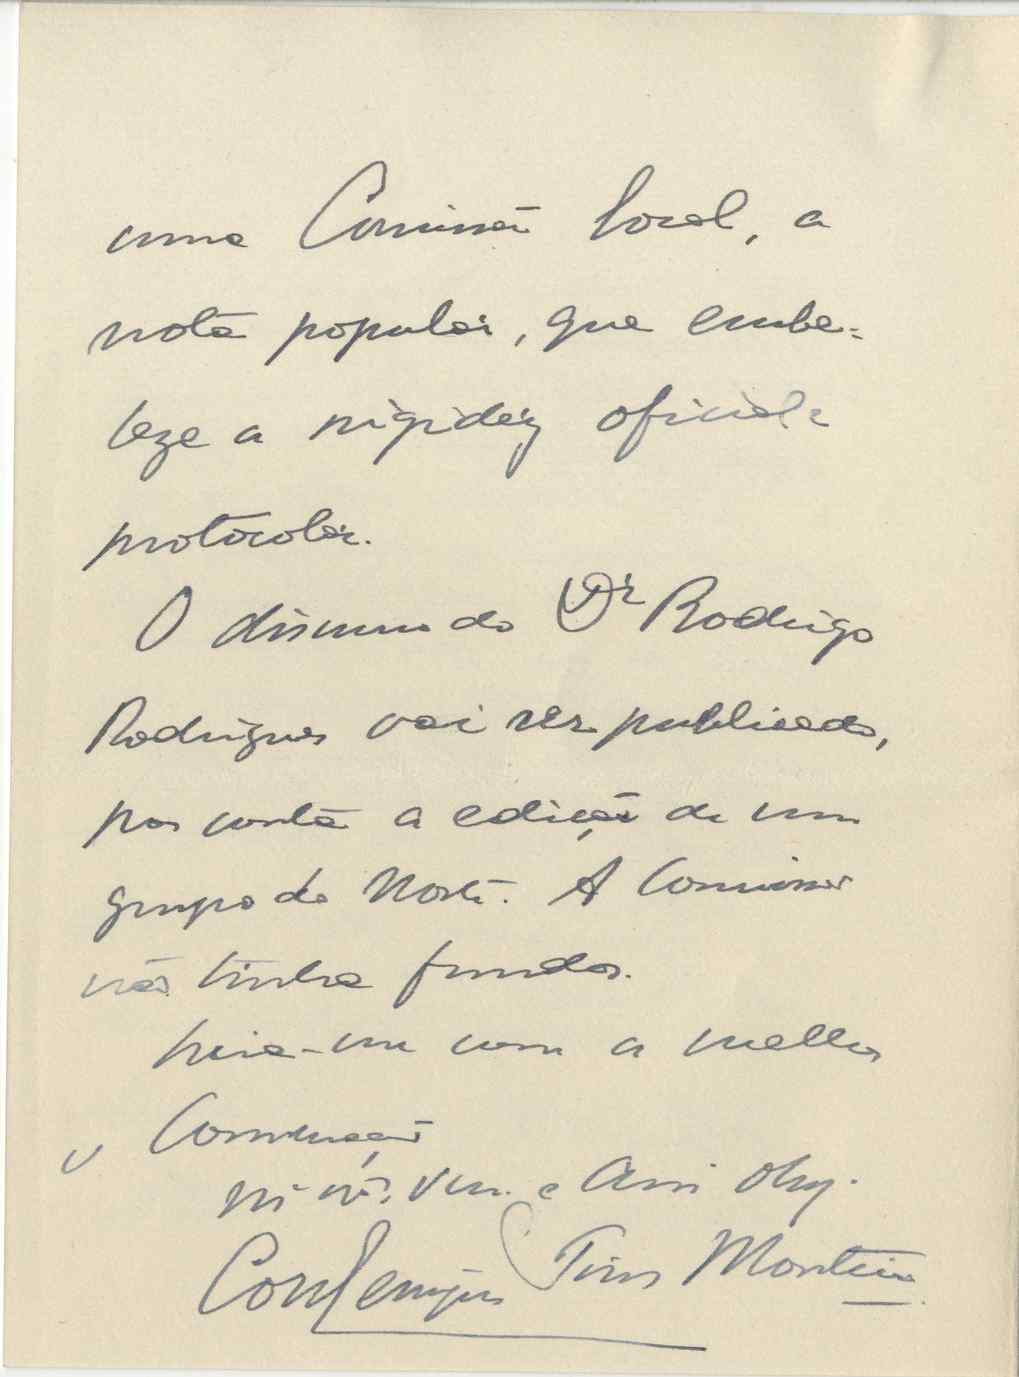 uma Comissão local, a
nota popular, que embe-
leze a rigidez oficial e
protocolar.
O discurso do Dr Rodrigo
Rodrigues vai ser publicado,
por conta a edição de um
grupo do Norte. A Comissão
não tinha fundos.
com a melhor
consideração
Pires Monteiro